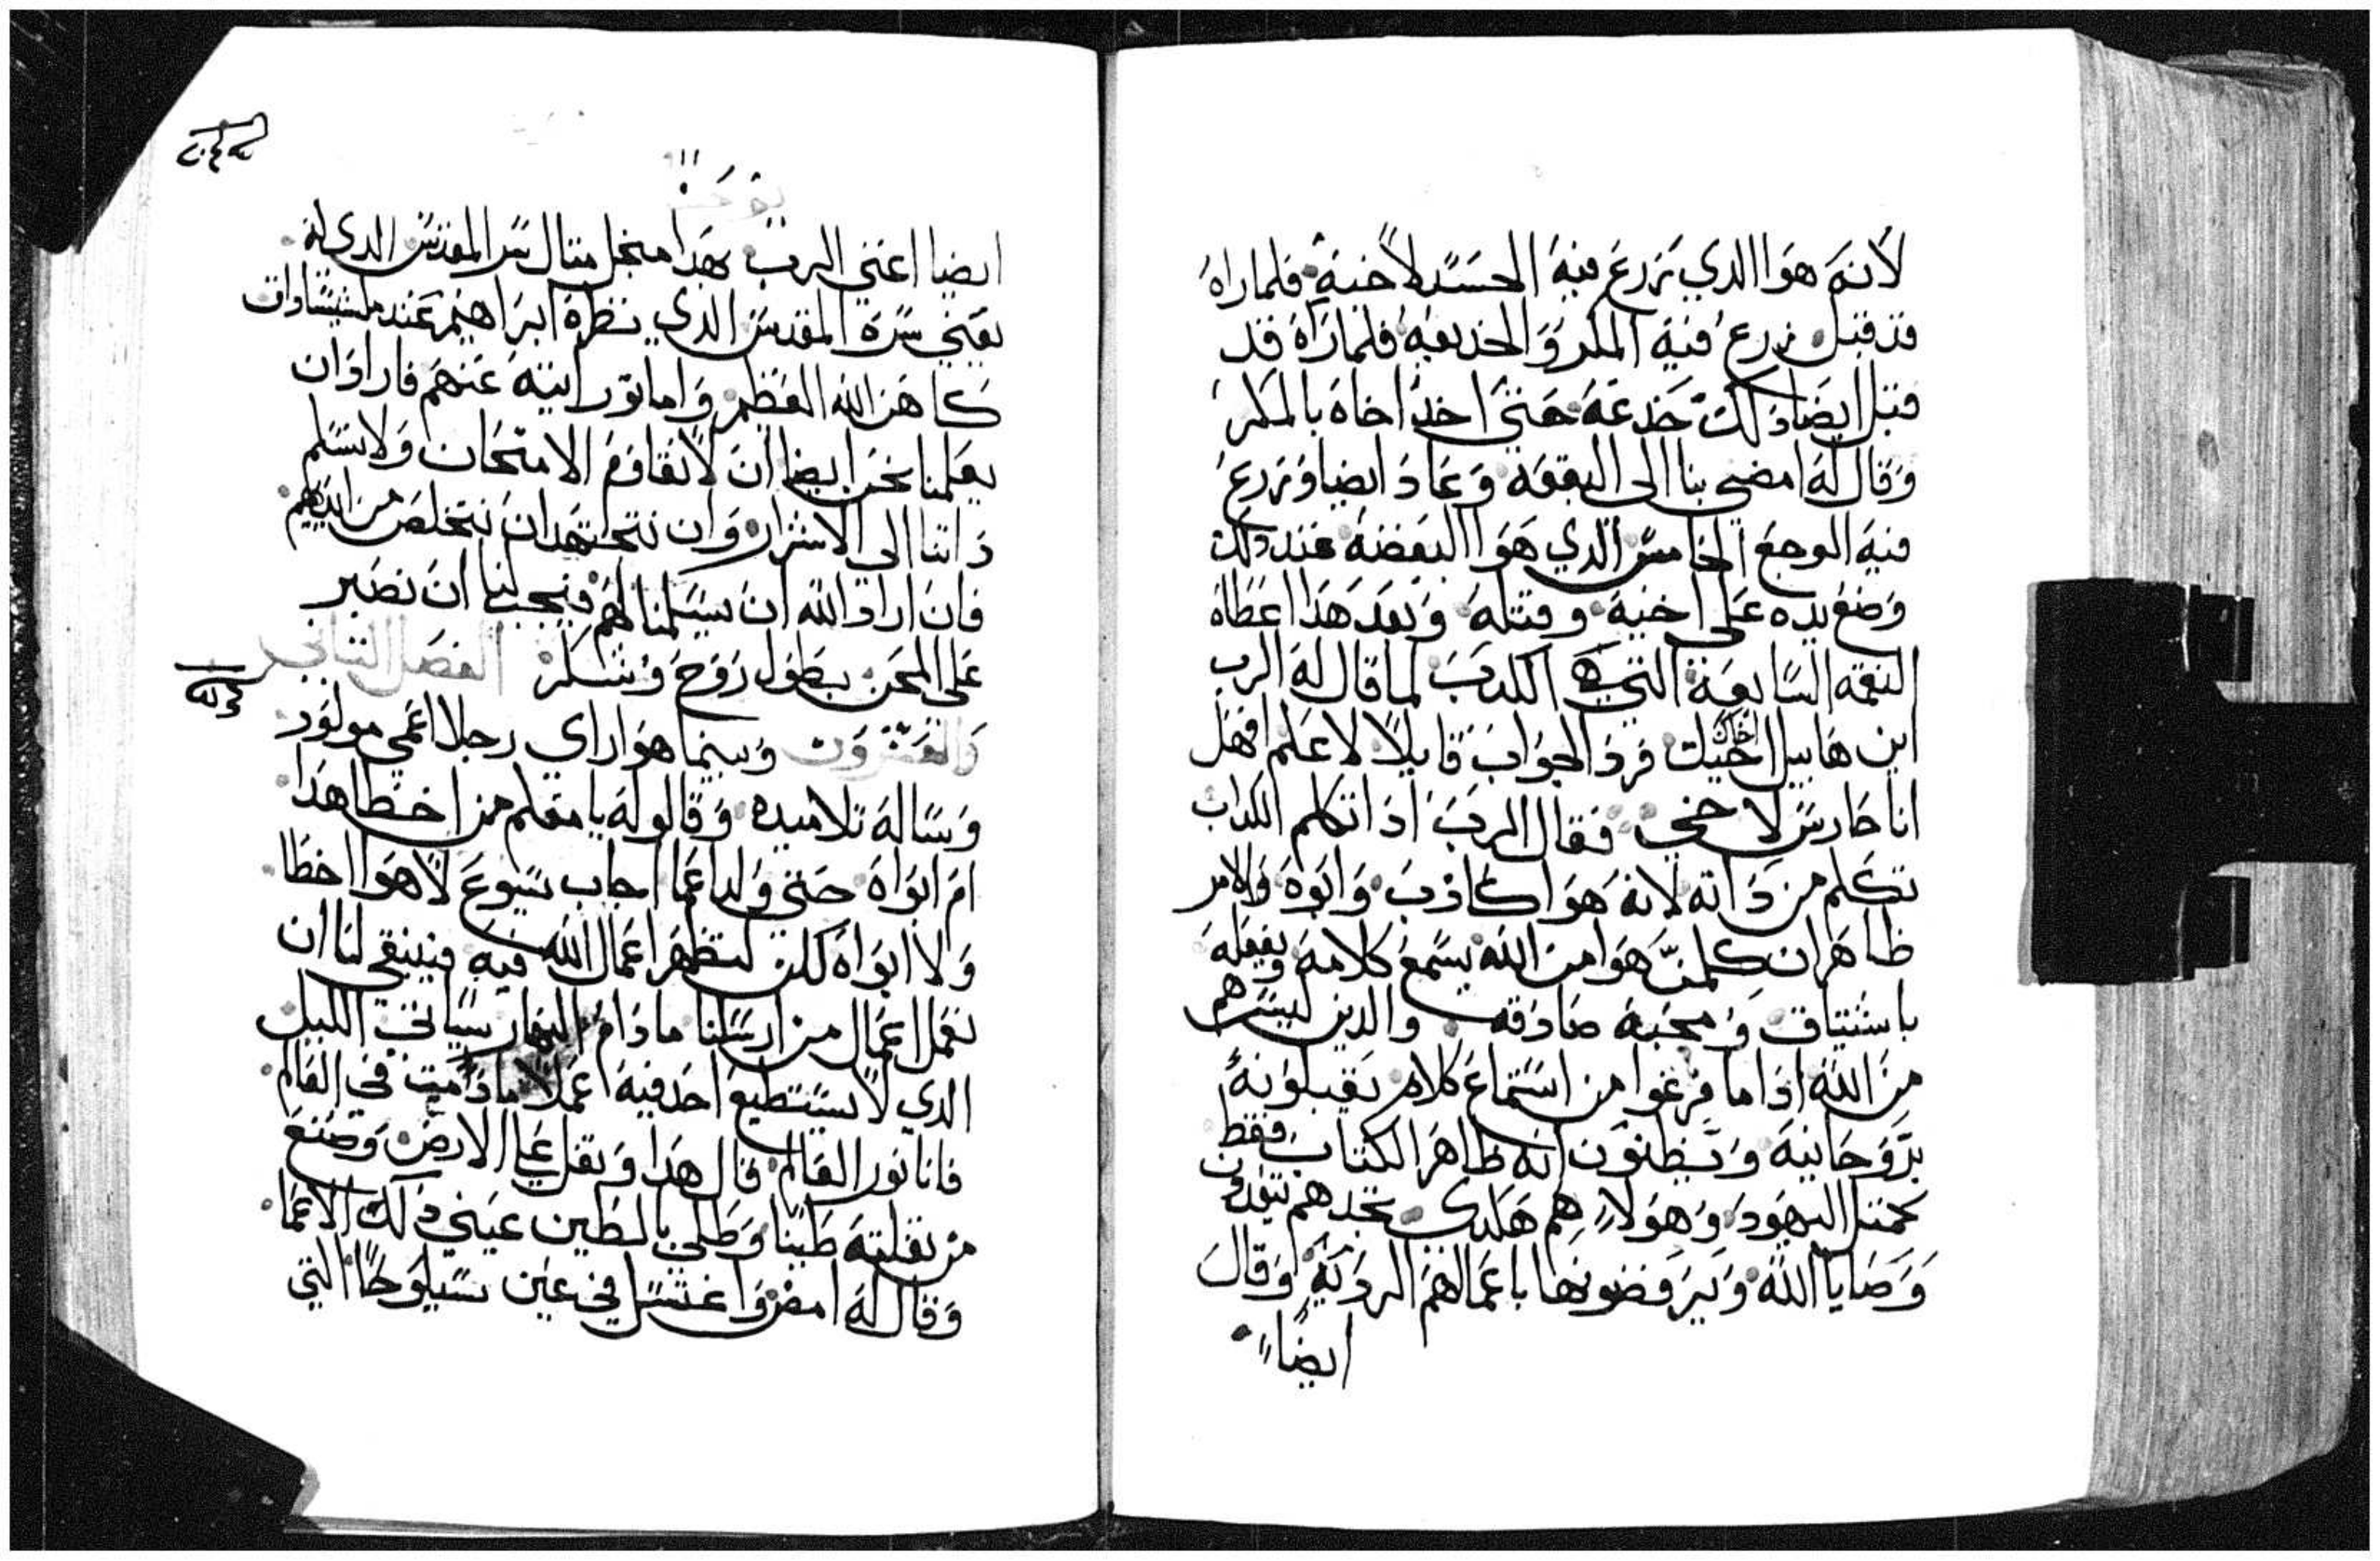 لانه هوا الدي يزرع فيه الحسد لاخيه فلما راه
قد قبل زرع فيه المكر والخديعه فلما راه قد
قبل ايضا دلك خدعه حتي اخد اخاه بالمكر
وقال له امضي بنا الى البقعه وعاد ايضا وزرع
فيه الوجع الخامس الدي هوا البغضه عند دلك
وضع يده على اخيه وقتله وبعد هدا اعطاه
النقمه السابعه التي هي الكدب لما قال له الرب
اين هابيل اخيك فرد الجواب قايلا لا اعلم افهل
انا حارس لاخي فقال الرب ادا تكلم الكداب
تكلم من داته لانه هوا كادب وابوه والامر
ظاهر ان كلمن هوا من الله يسمع كلامه ويفعله
باشتياق ومحبه صادقه والدين ليس هم
من الله ادا ما فرغوا من استماع كلام يقبلونه
بروحانيه ويظنون انه ظاهر الكتاب فقط
كمثل اليهود وهولاء هم هكدى تجدهم
وصايا الله ويرفضونها باعمالهم الرديه وقال
ايضا
يوحنا
ايضا اعني الرب بهدا منجل متال سر المقدس الدي له
يعني سره المقدس الدي نظره ابراهيم عند ملشيساداق
كاهن الله العظيم واما تورانيه عنهم فاراد ان
يعلمنا نحن ايضا ان لا نقاوم الامتحان ولا نسلم
داتنا الى الاشرار وان نجتهد ان نتخلص من ايديهم
فان اراد الله ان يسلمنا لهم فيجب لنا ان نصبر
على المحن بطول روح وشكر الفصل الثاني
والعشرون وبينما هوا راي رجلا اعمي مولود
وساله تلاميده وقالو له يا معلم من اخطا هدا
ام ابواه حتي ولد اعما اجاب يسوع لا هوا اخطا
ولا ابواه لكن لتظهر اعمال الله فيه فينبغي لنا ان
نعمل اعمال من ارسلنا ما دام النهار سياتي الليل
الدي لا يستطيع احد فيه عملا ما دمت في العالم
فانا نور العالم قال هدا وتفل على الارض وصنع
من تفلته طينا وطلي بالطين عيني دلك الاعما
وقال له امض واغتسل في عين سيلوحا التي